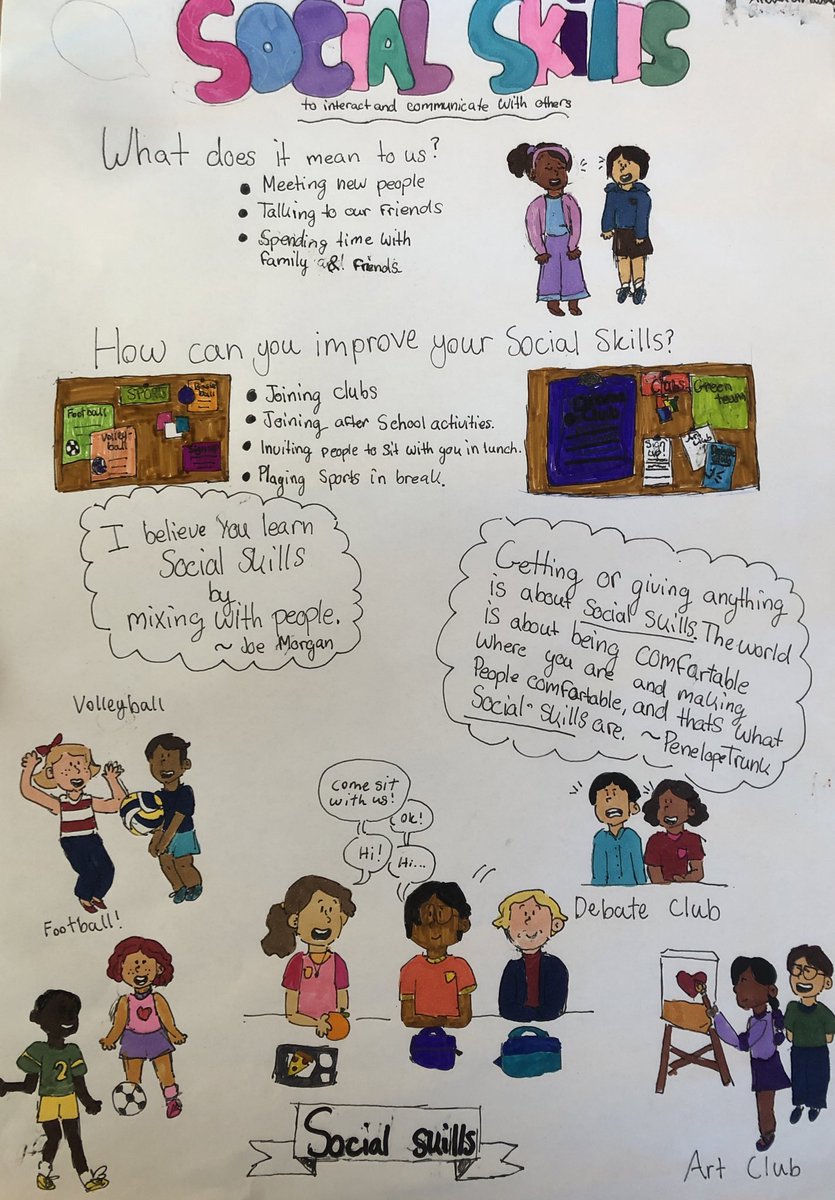 SOCIAL SKillS
to interact and communicate with others
What does it mean to us?
• Meeting new people
• Talking to our Friends
• Spending time with
family &! Friends
How can you improve your Social Skills?
SPORTS
Football
Volley-
ball
Sign up
• Joining clubs
• Joining after School activities.
• Inviting people to sit with you in lunch.
• Plaging Sports in break.
Club
Clubs
Green
team
Sign
up!
Art
Club
I believe you learn
Social Skills
by
mixing with people.
~ Joe Morgan
Getting or giving anything
is about Social Skills. The world
is about being comfortable
where you are and making
People comfortable, and thats what
Social-Skills are. ~Penelope Trunk
Volleyball
Come sit
with us!
Ok!
Hi!
Hi...
Debate Club
Football!
2
Social skills
Art Club